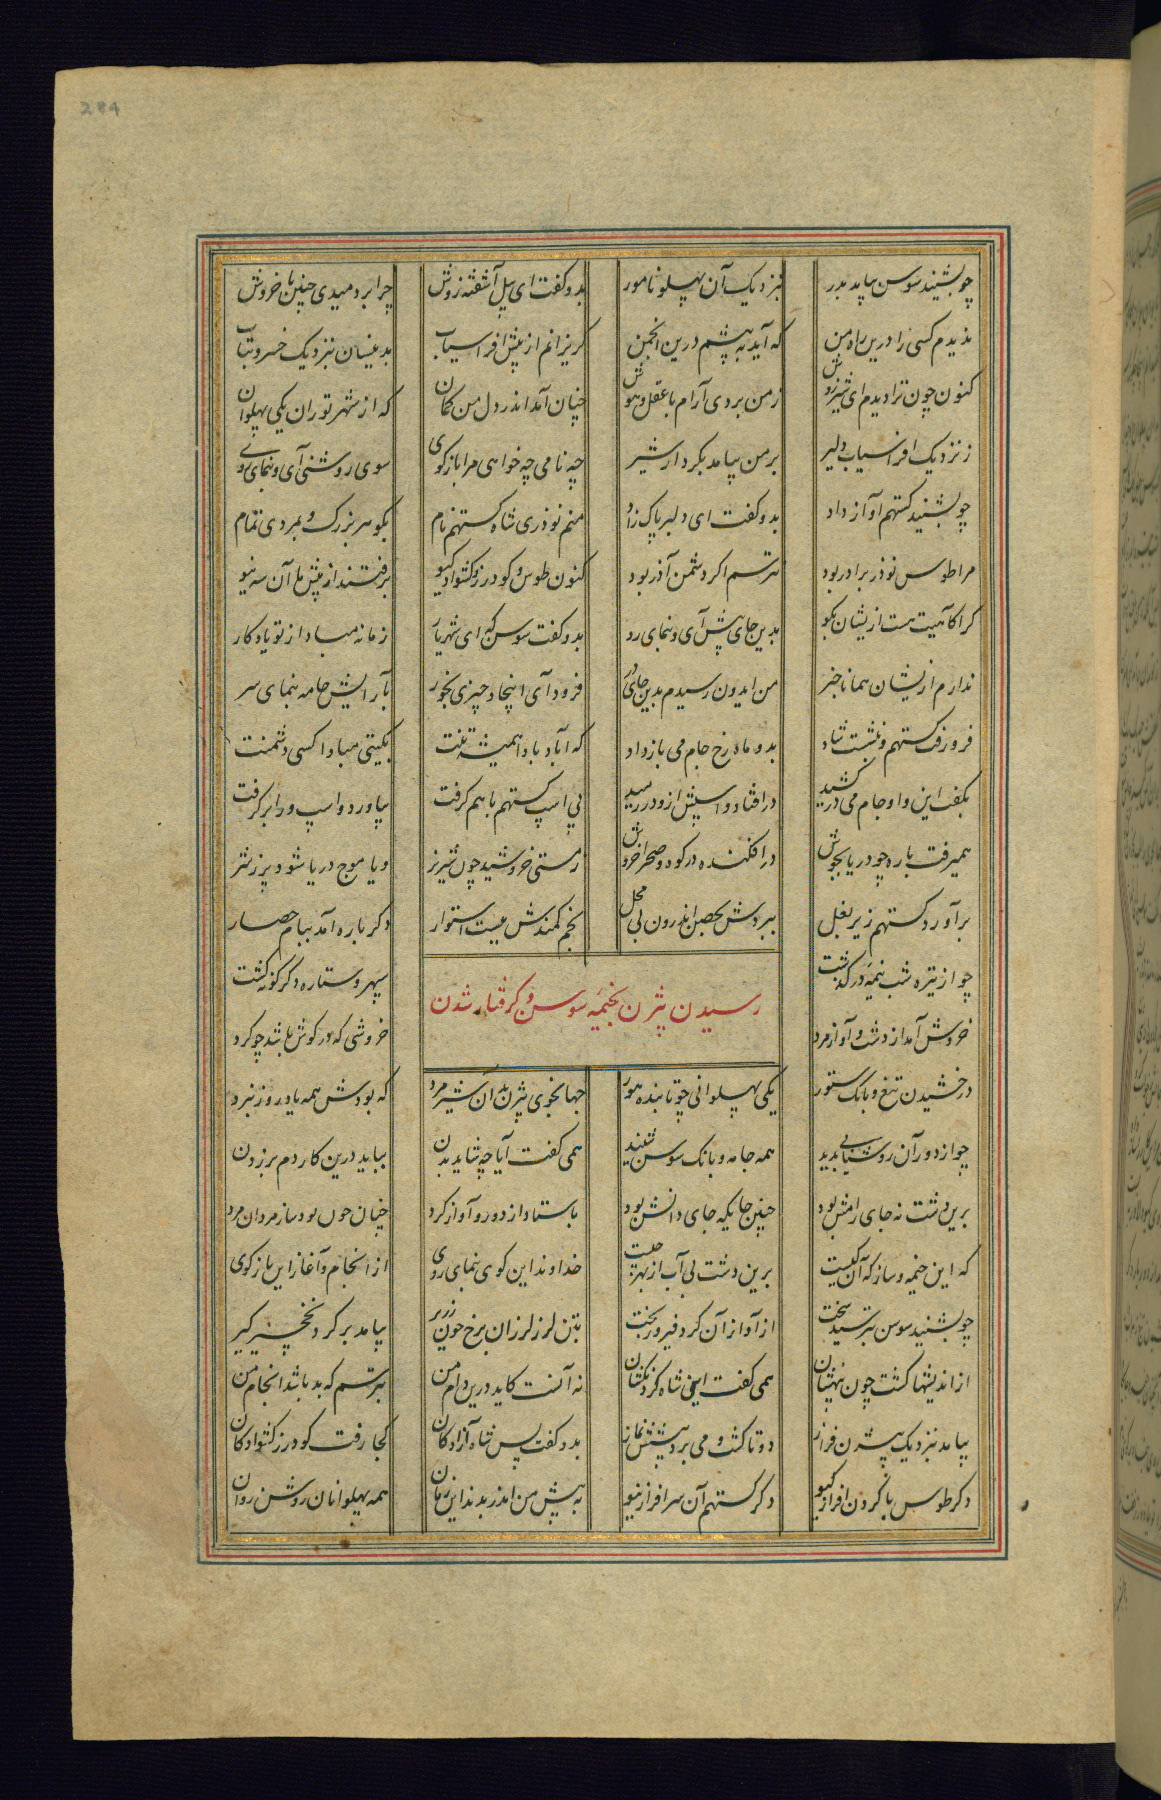 284
چو بشنید سوسن بیامد بدر نبزدیک آن پهلو نامور بدو گفت ای پیل آشفته زوش چرا بردمیدی چنین با خروش
ندیدم کسی را درین راه من که آید به پیشم درین انجمن گریزانم از پیش افراسیاب بدینسان بنزدیک خسرو شتاب
کنون چون ترا دیدم ای تیزوش ز من بردی آرام با عقل و هوش چنان آمد اندر دل من گمان که از شهر توران یکی پهلوان
ز نزدیک افراسیاب دلیر بر من بیامد بکردار شیر چه نامی چه خواهی مرا بازگوی سوی روشنی آی و بنمای روی
چو بشنید گستهم آواز داد بدو گفت ای دلبر پاک زاد منم نوذری شاه گستهم نام بگوهر بزرگ و بمردی تمام
مرا طوس نوذر برادر بود نترسم اگر دشمن آذر بود کنون طوس و گودرز کشواد گیو برفتند از پیش ما آن سه نیو
کرا آگهیت هست ازیشان بگو بدین جای پیش آی و بنمای رو بدو گفت سوسن که ای شهریار زمانه مبادا ز تو یادگار
ندارم ازیشان همانا خبر من ایدون رسیدم بدین جای فرود آی اینجا و چیزی بخور بآرایش جامه بنمای سر
فرو رفت گستهم و بنشست شاد بدو ماه رخ جام می باز داد که آباد بادا همیشه تنت بگیتی مبادا کسی دشمنت
بگفت این و او جام می در کشید در افتاد و اسپش ازو در رمید پی اسپ گستهم با هم گرفت بیاورد و اسپ ورا بر گرفت
همیرفت باره چو دریا بجوش در افکنده در کوه و صحرا خروش ز مستی خروشید چون شیر نر و یا موج دریا شود پر ز شر
برآورد گستهم زیر بغل ببردش بحصن اندرون بی محل بخم کمندش ببست استوار دگرباره آمد ببام حصار
چو از تیره شب نیمه در گذشت سپهر و ستاره دگر گونه گشت
رسیدن بیژن بخیمه سوسن و گرفتار شدن
خروش آمد از دشت و آواز مرد خروشی که در گوش باشد چو کرد
درخشیدن تیغ و بانگ ستور یکی پهلوانی چو تابنده هور جهانجوی بیژن بد آن شیر مرد که بودش همه یاد روز نبرد
چو از دور آن روشنایی بدید همه جامه و بانگ سوسن شنید همی گفت آیا چه شاید بدن بباید درین کار دم بر زدن
برین دشت نه جای رامش بود چنین جایگه جای دانش بود باستاد از دور و آواز کرد چنان چون بود ساز مردان مرد
که این خیمه و ساز که آن کیست برین دشت بی آب از بهر چیست خداوند این گوی بنمای روی از انجام و آغاز این بازگوی
چو بشنید سوسن بترسید سخت از آواز آن گرد فیروز بخت بتن لرز لرزان برخ چون زریر بیامد بر گرد نخچیرگیر
از اندیشها گشت چون بیهشان همی گفت این شاه گردنکشان نه آنست کاید درین دام من بترسم که بد باشد انجام من
بیامد بنزدیک بیژن فراز دوتا گشت و می برد پیشش نماز بدو گفت پس شاه آزادگان کجا رفت گودرز کشوادگان
دگر طوس با گردن افراز گیو دگر گستهم آن سرافراز نیو به پیش من اندر بدند این زمان همه پهلوانان روشن روان